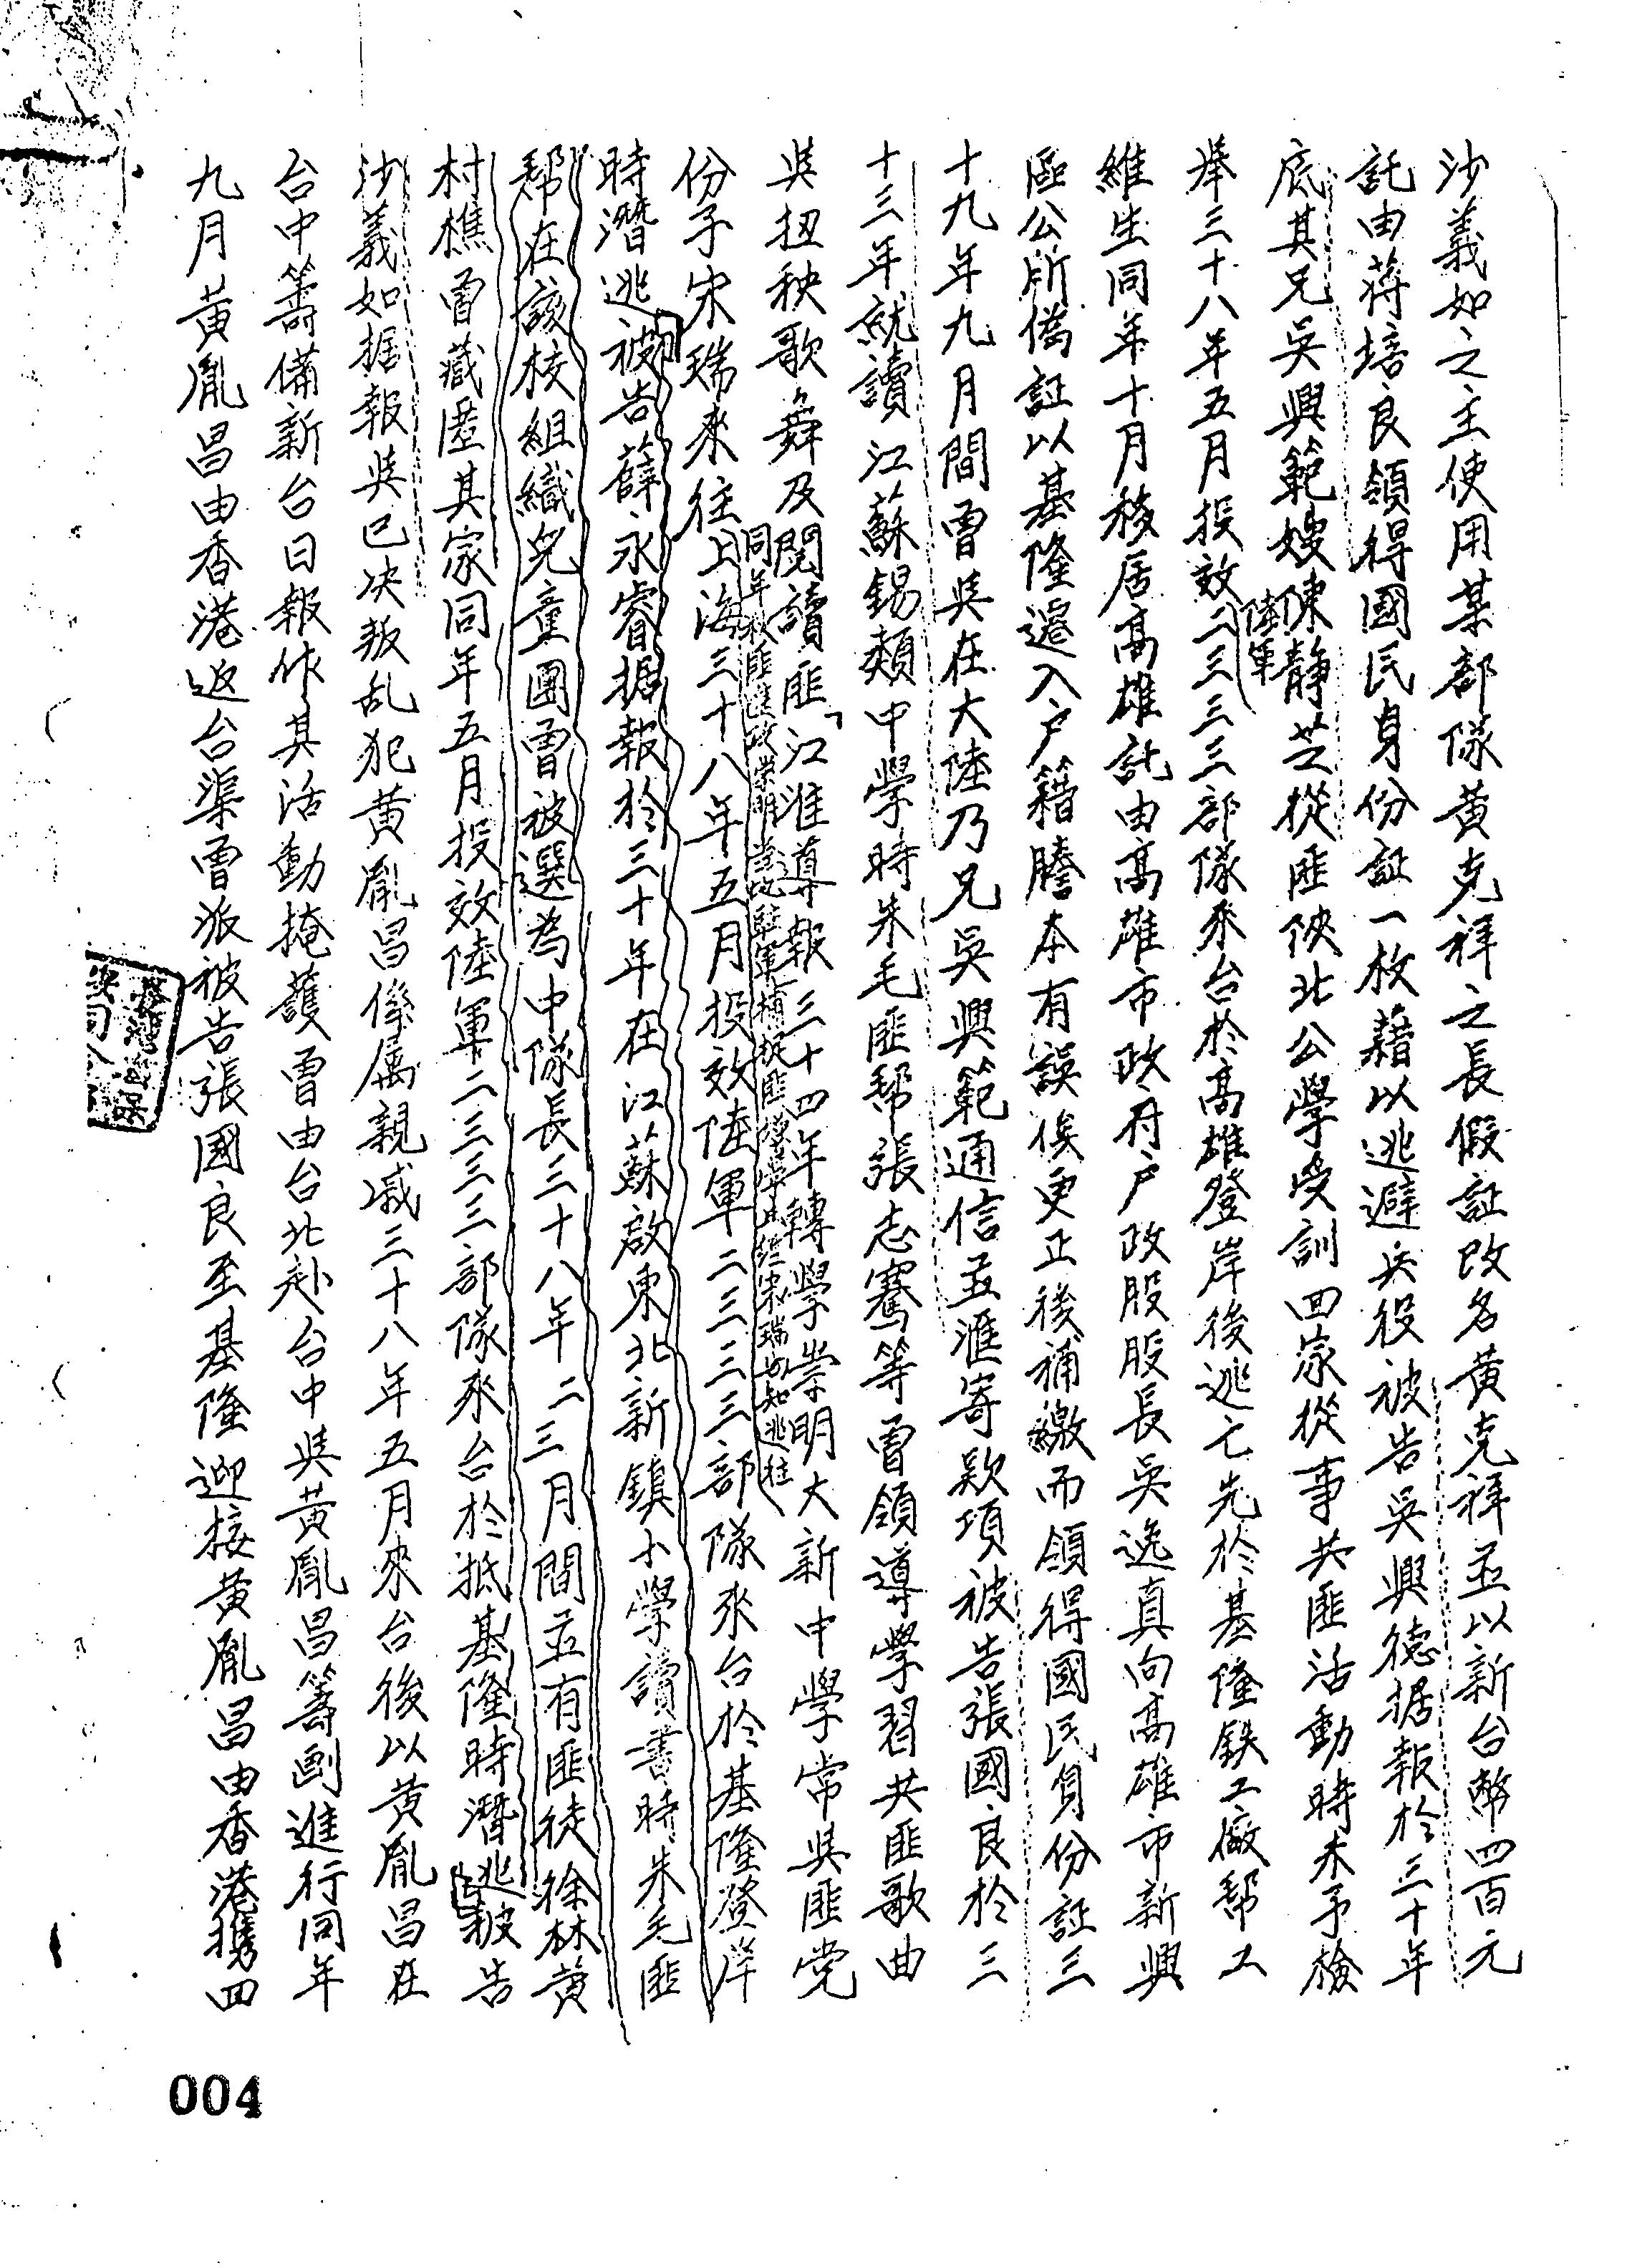 沙義如之主使用某部隊黃克祥之長假証改名黃克祥並以新台幣四百元
託由蔣培良領得國民身份証一枚藉以逃避兵役被告吳興德据報於三十年
底其兄吳興範嫂陳靜芝從匪俠北公學受訓回家從事共匪活動時未予檢
舉三十八年五月投效陸軍二三三三部隊來台於高雄登岸後逃亡先於基隆鉄工廠幫工
維生同年十月移居高雄託由高雄市政府户政股股長吳逸真向高雄市新興
區公所偽証以基隆遷入户籍謄本有誤俟更正後補繳而領得國民身份証三
十九年九月間曾吳在大陸乃兄吳興範通信並滙寄欵項被告張國良於三
十三年就讀江蘇錫類中學時朱毛匪幫張志騫等曾領導學習共匪歌曲
吳扭秧歌舞及閱讀匪「江淮導報」三十四年轉學崇明大新中學常吳匪党
同年秋匪進攻崇明當地駐軍捕捉匪經宋瑞勿知逃往
份子宋瑞來往上海三十八年五月投效陸軍二三三三部隊來台於基隆登岸
時潛逃被告薛永睿据報於三十年在江蘇啟東北新鎮小學讀書時朱毛匪
幫在該校組織兒童團曾被選為中隊長三十八年二三月間並有匪徒徐林黃
村樵曾藏匿其家同年五月投效陸軍二三三三部隊來台於抵基隆時潛逃被告
沙義如据報吳已决叛乱犯黃胤昌係属親戚三十八年五月來台後以黃胤昌在
台中籌備新台日報作其活動掩護曾由台北赴台中吳黃胤昌籌劃進行同年
九月黃胤昌由香港返台渠曾派被告張國良至基隆迎接黃胤昌由香港携四
004